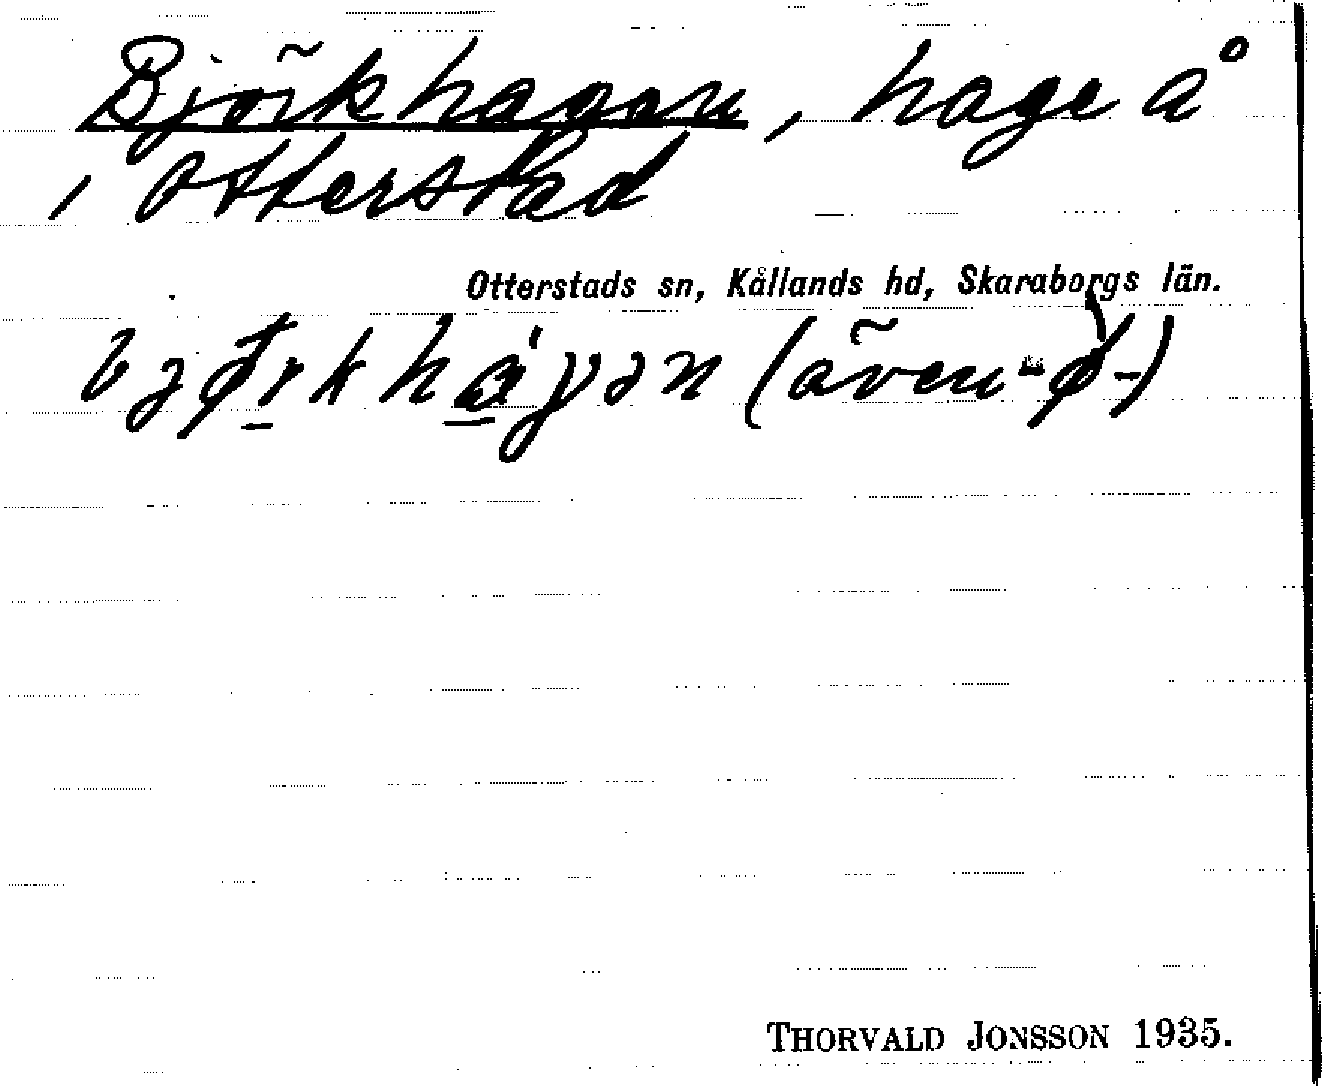 Björkhagen, hage å
, Otterstad
Otterstads sn, Kållands hd, Skaraborgs län.
bjørkhɑ́gən (även -ø-)
THORVALD JONSSON 1935.